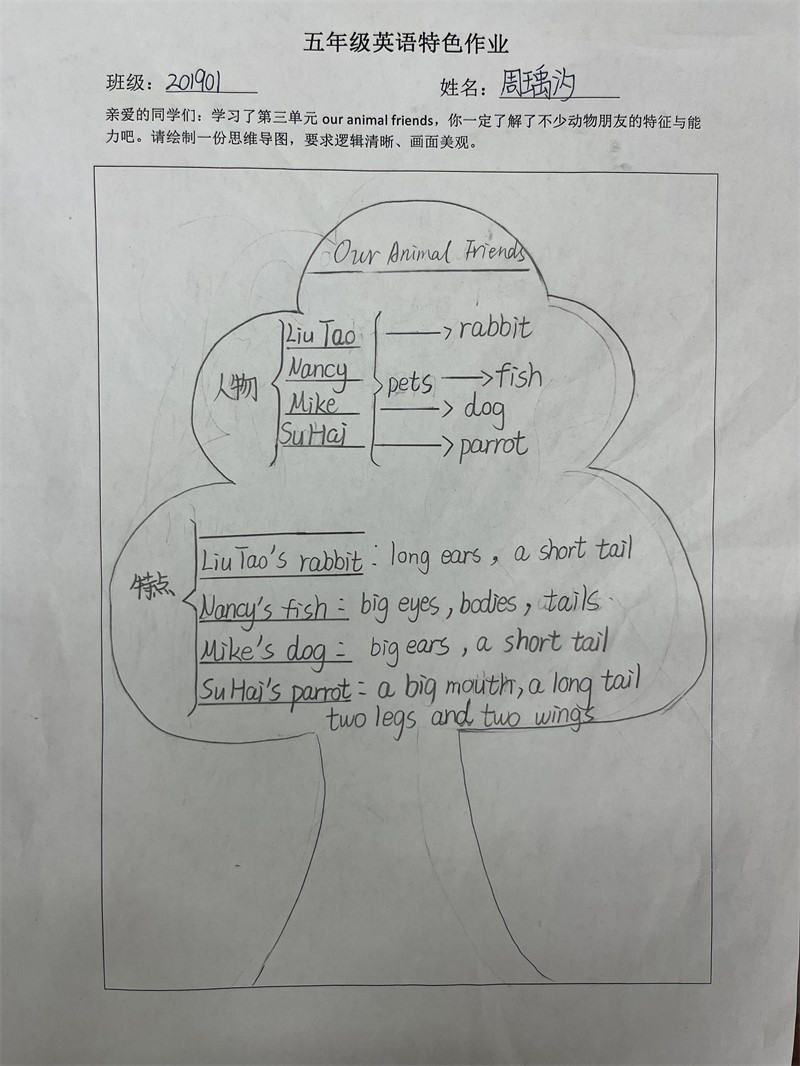 五年级英语特色作业
班级：201901 姓名：周瑀汮
亲爱的同学们：学习了第三单元 our animal friends，你一定了解了不少动物朋友的特征与能
力吧。请绘制一份思维导图，要求逻辑清晰、画面美观。
Our Animal Friends
人物
Liu Tao
Nancy
Mike
Su Hai
pets
rabbit
fish
dog
parrot
特点
Liu Tao's rabbit: long ears, a short tail
Nancy's fish: big eyes, bodies, tails.
Mike's dog: big ears, a short tail
Su Hai's parrot: a big mouth, a long tail
two legs and two wings